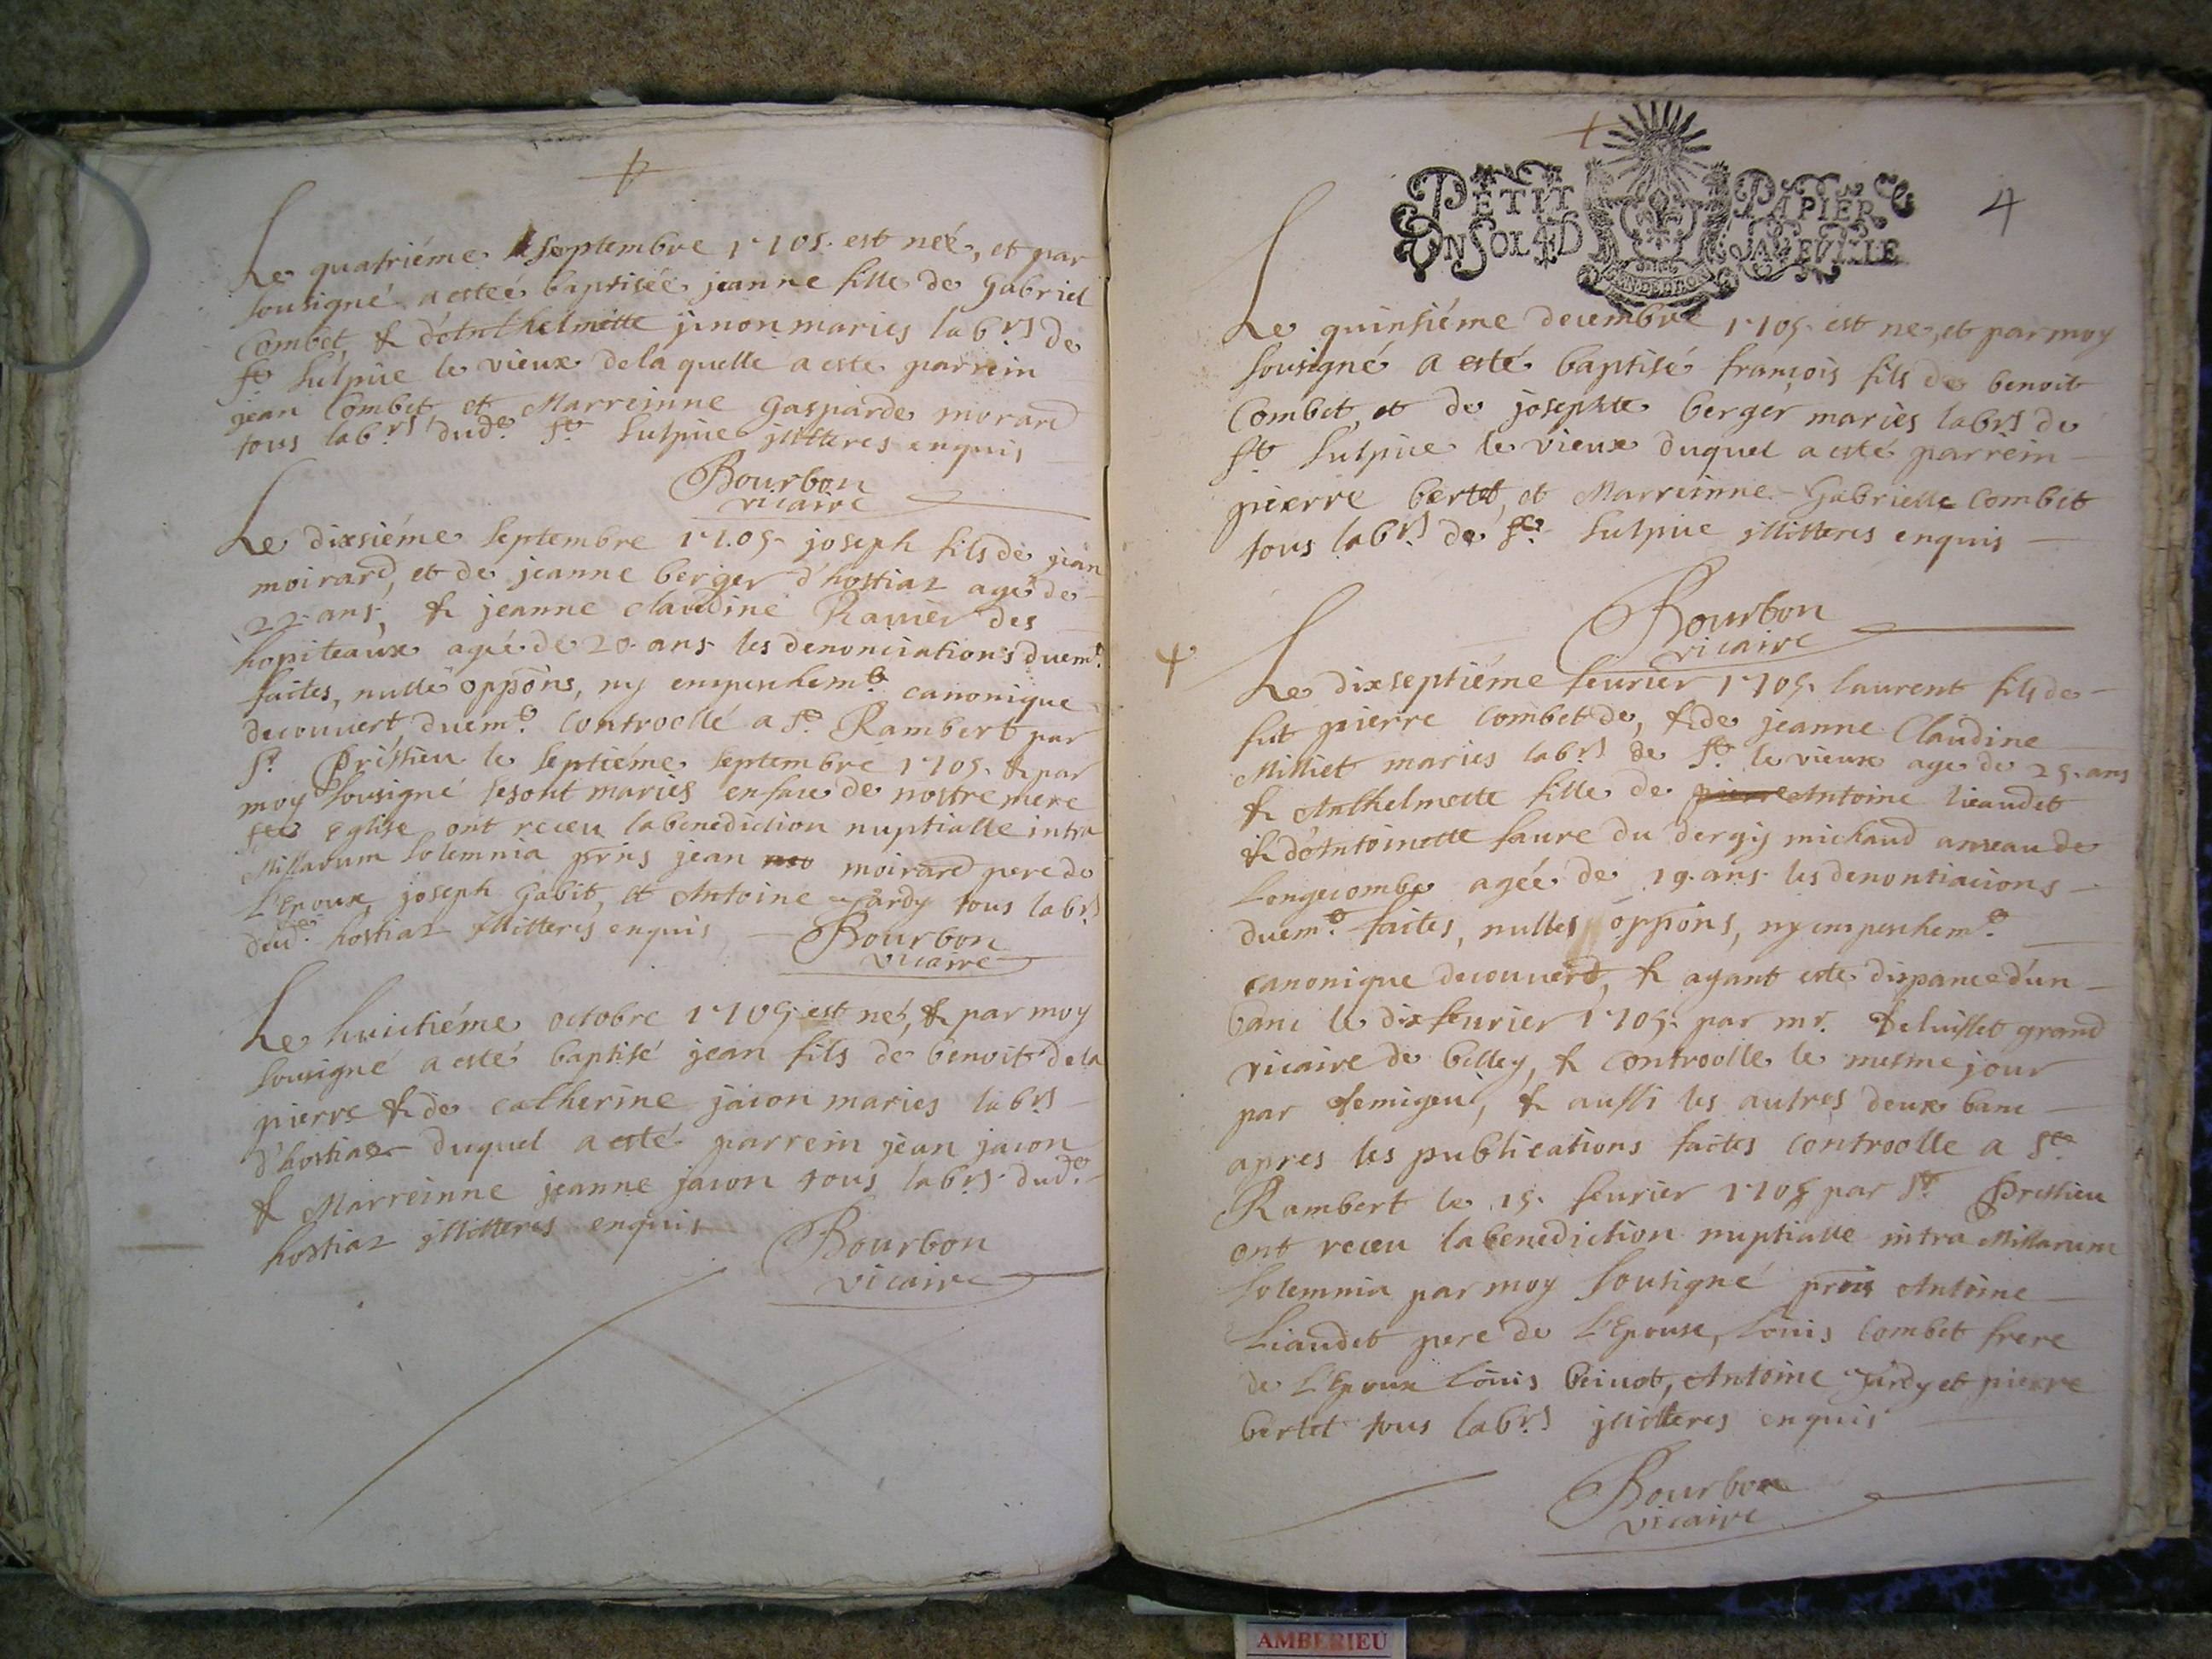 Le quatriéme Septembre 1705. est neé, et par
sousigné a esteé baptiseé jeanne fille de Gabriel
Combet, & d'Anthelmette jinon mariés lab.rs de
St Sulpice le vieux de la quelle a esté parrein
jean Combet, et Marreinne Gasparde morard
tous lab.rs dud.t St Sulpice jllitteres enquis
Bourbon
vicaire
Le dixsiéme Septembre 1705. joseph fils de jean
moirard, et de jeanne berger d'hostiaz agé de
22. ans, & jeanne claudine Ravier des
hopiteaux agée de 20. ans les denonciations duem.t
faites, nulle oppons, ny empeschem.t canonique
decouvert, duem.t controollé a St Rambert par
Sr Prissieu le septiéme septembre 1705. & par
moy sousigné se sont mariés en face de nostre mere
ste Eglise ont receu la benediction nuptialle intra
Missarum solemnia prns jean moirard pere de
L'Epoux, joseph Gabit, et Antoine Jardy tous lab.rs
dud.t hostiaz jllitteres enquis
Bourbon
vicaire
Le huictiéme octobre 1705. est né, & par moy
sousigné a esté baptisé jean fils de benoit dela
pierre & de catherine jacon mariés labrs
d'hostiaz duquel a esté parrein jean jacon
& Marreinne jeanne jacon tous labrs dud.t
hostiaz jllitteres enquis
Bourbon
vicaire
PETIT PAPIER
UN SOL LA FEUILLE
4
Le quinsiéme decembre 1705. est ne, et par moy
sousigné a esté baptisé françois fils de benoit
Combet, et de josephte berger mariés labrs de
St Sulpice le vieux duquel a esté parrein
pierre bertet, et Marreinne Gabrielle Combet
tous lab.rs de St Sulpice jllitteres enquis
Bourbon
vicaire
Le dixseptiéme feurier 1705. laurent fils de
fut pierre combet de, & de jeanne Claudine
Milliet mariés lab.rs de St le vieux age de 25. ans
& Anthelmette fille de pierre Antoine lieaudet
& d'Antoinette faure du dergis michaud anneau de
Longecombe agée de 19. ans les denontiacions
duem.t faites, nulles oppons, ny empeschem.t
canonique decouvert, & ayant esté dispance d'un
banc le dix feurier 1705. par mr. deluisset grand
vicaire de belley, & controolle le mesme jour
par demigeu, & aussi les autres deux banc
apres les publications faites controolle a St
Rambert le 15. feurier 1705 par Sr Prissieu
ont receu la benediction nuptialle intra Missarum
solemnia par moy sousigné prns Antoine
Liaudet pere de L'Epouse, Louis Combet frere
de L'Epoux Louis Beinot, Antoine Jardy et pierre
bertet tous lab.rs jllitteres enquis
Bourbon
vicaire
AMBERIEU